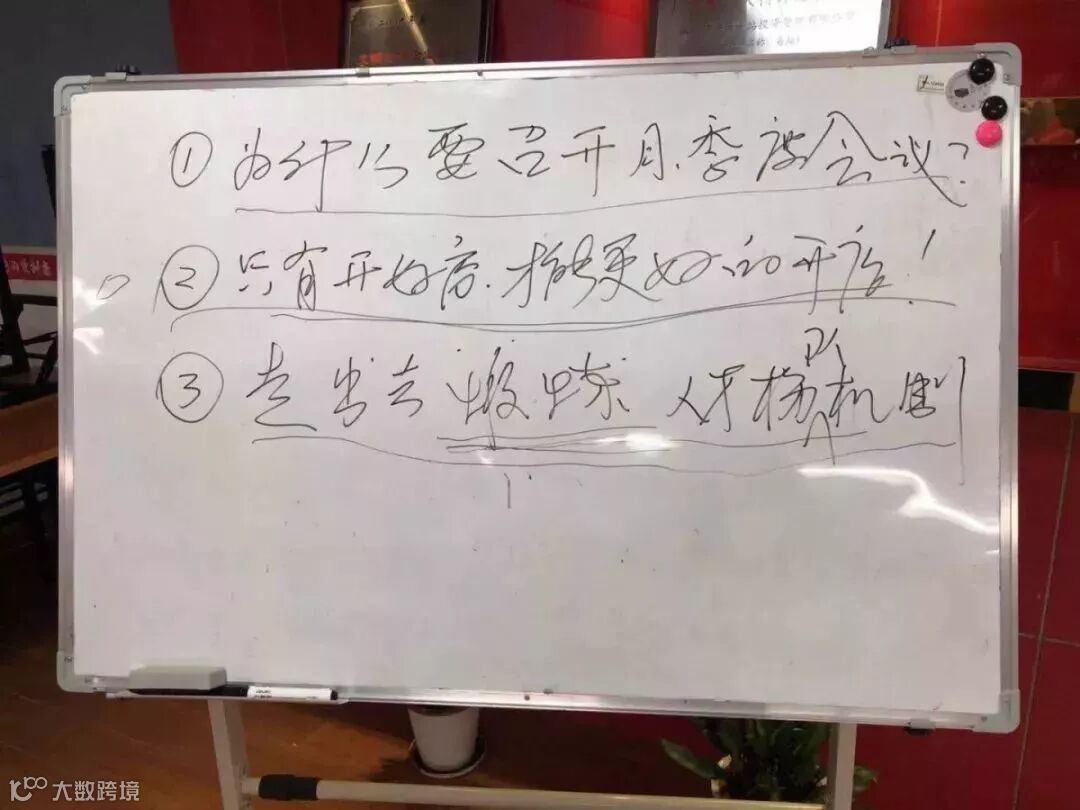 ①为什么要召开月.季度会议?
②只有开好店.才能更好的开店!
③走出去 锻炼 人才梯队机制
大数跨境